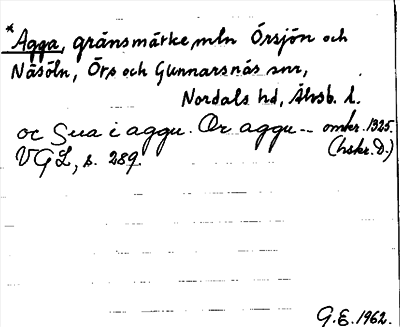 *Agga, gränsmärke mln Örsjön och
Näsöln, Örs och Gunnarsnäs snr,
Nordals hd, Älvsb. l.
oc sua i aggu. Or aggu -- omkr. 1325.
VGL, s. 289. (hskr. D.)
G.E. 1962.